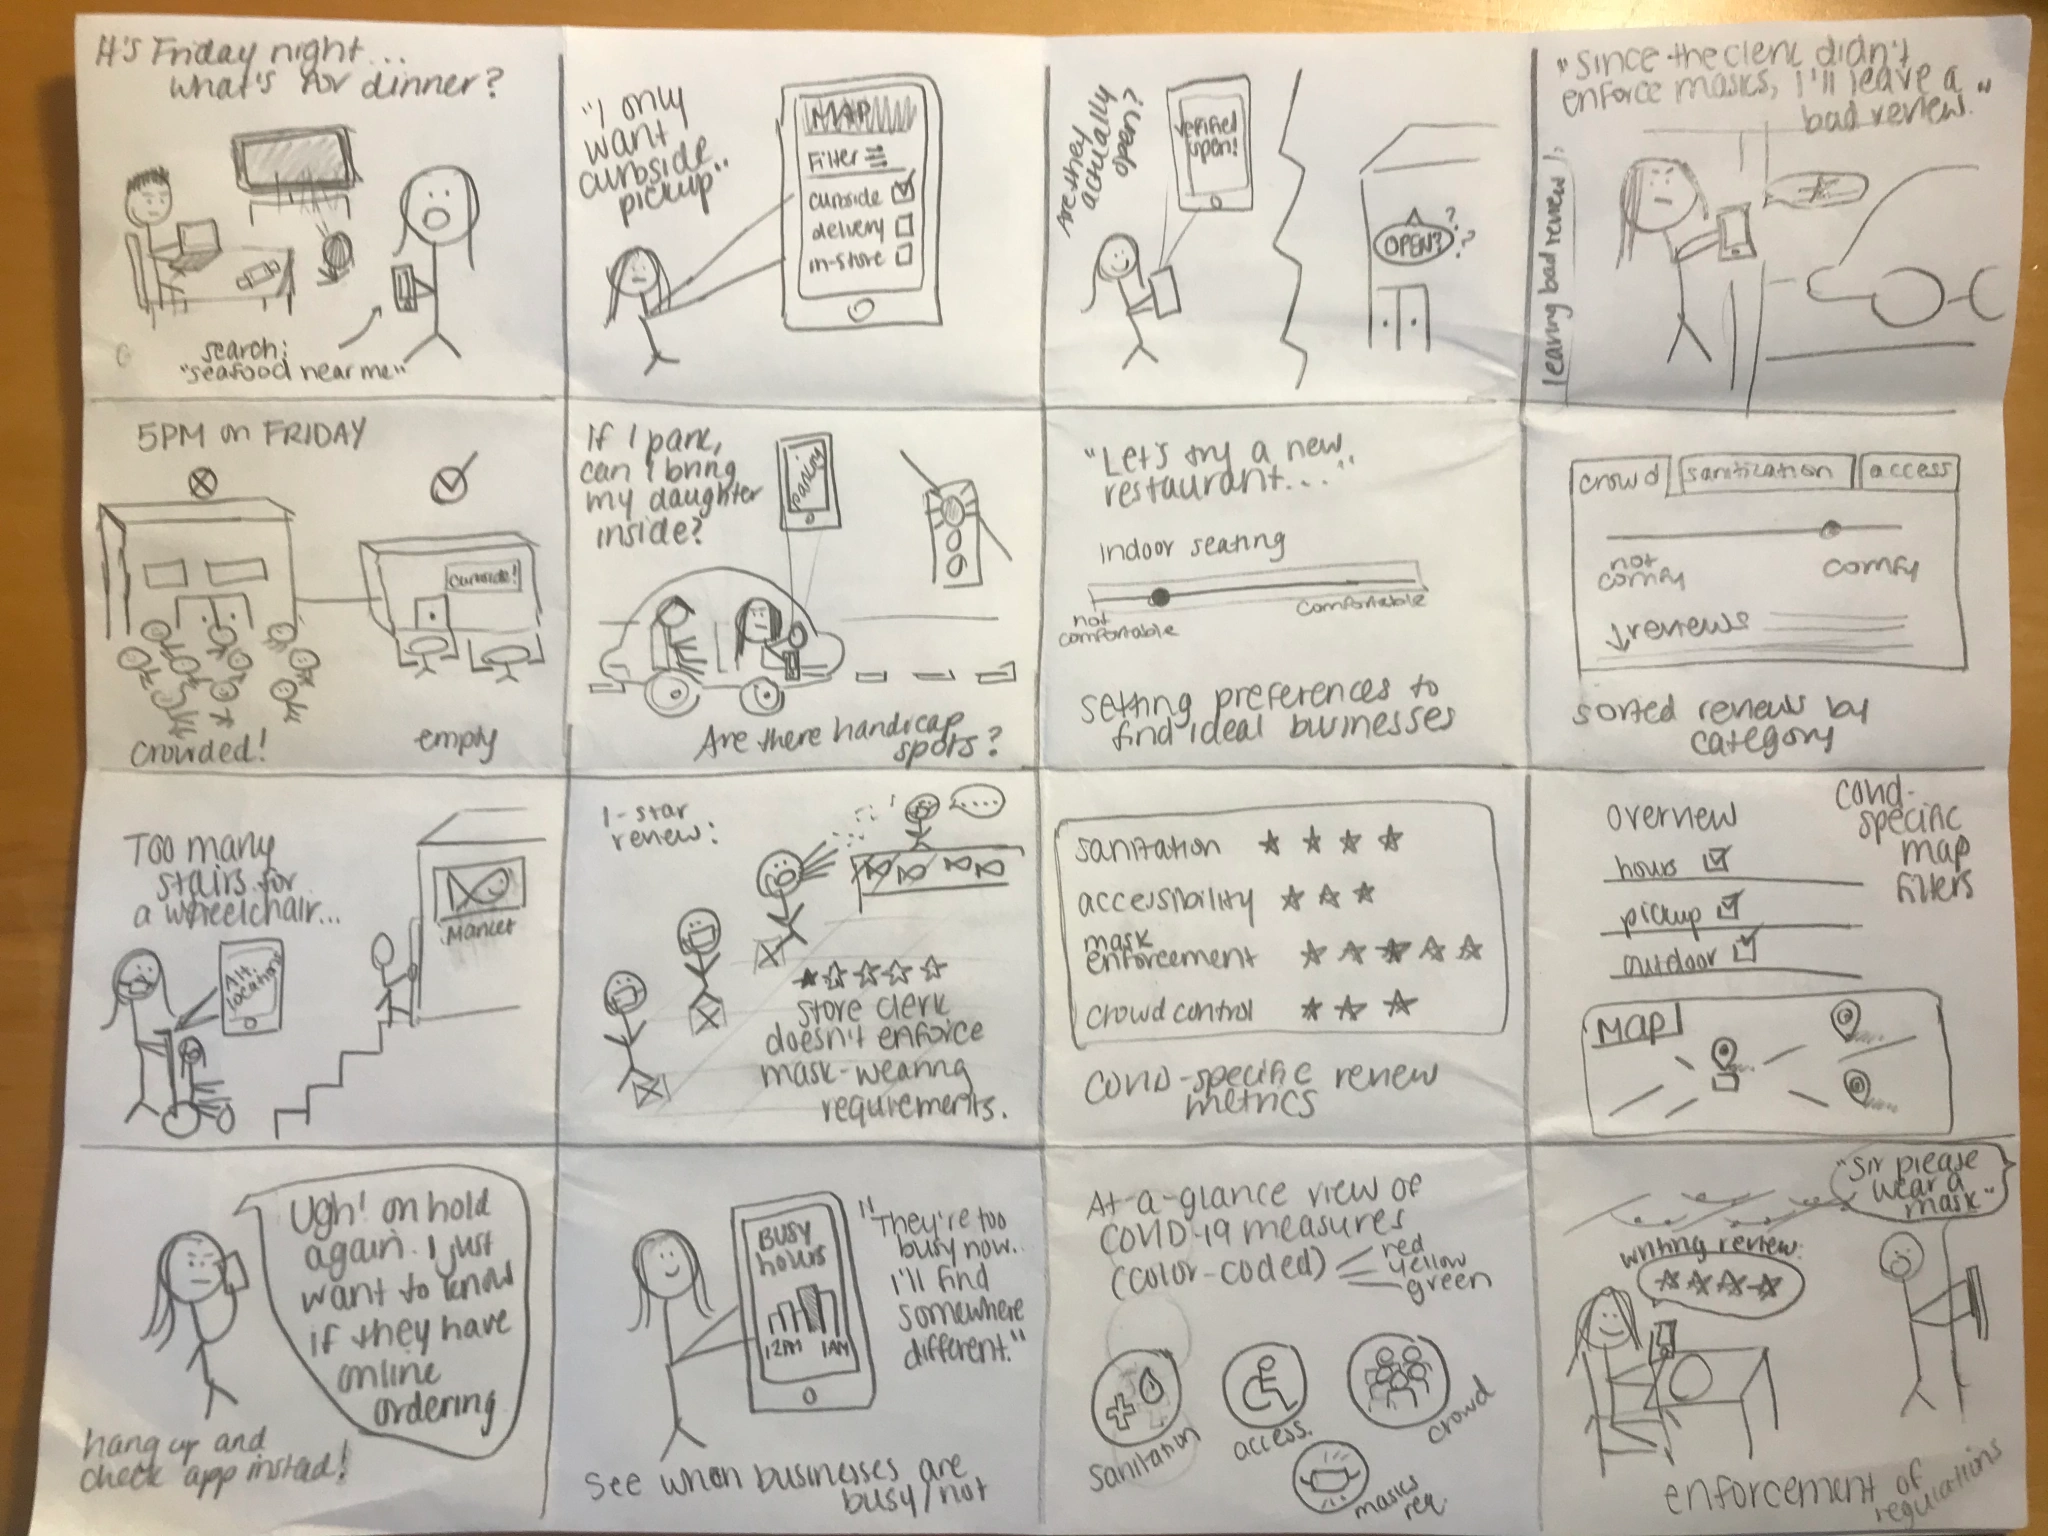 It's Friday night...
what's for dinner?
search:
"seafood near me"
"I only
want
curbside
pickup"
MAP
Filter
curbside
delivery
in-store
Are they
actually
open?
verified
open!
OPEN?
?
?
?
"Since the clerk didn't
enforce masks, I'll leave a
bad review."
leaving bad review!
5PM on FRIDAY
curbside!
crowded!
empty
If I park,
can I bring
my daughter
inside?
parking
Are there handicap
spots?
"Let's try a new
restaurant..."
indoor seating
not
comfortable
comfortable
setting preferences to
find ideal businesses
crowd
sanitization
access
not
comfy
comfy
↓reviews
sorted reviews by
category
Too many
stairs for
a wheelchair...
Alt.
locations
Market
1-star
review:
....
store clerk
doesn't enforce
mask-wearing
requirements.
sanitation
accessibility
mask
enforcement
crowd control
COVID-specific review
metrics
overview
hours
pickup
outdoor
COVID-
specific
map
filters
MAP
Ugh! on hold
again. I just
want to know
if they have
online
ordering
hang up and
check app instead!
BUSY
hours
12PM 1AM
"They're too
busy now..
I'll find
somewhere
different."
See when businesses are
busy/not
At-a-glance view of
COVID-19 measures
(color-coded)
red
yellow
green
sanitation
access.
crowd
masks
req.
"Sir please
wear a
mask"
writing review:
enforcement of
regulations